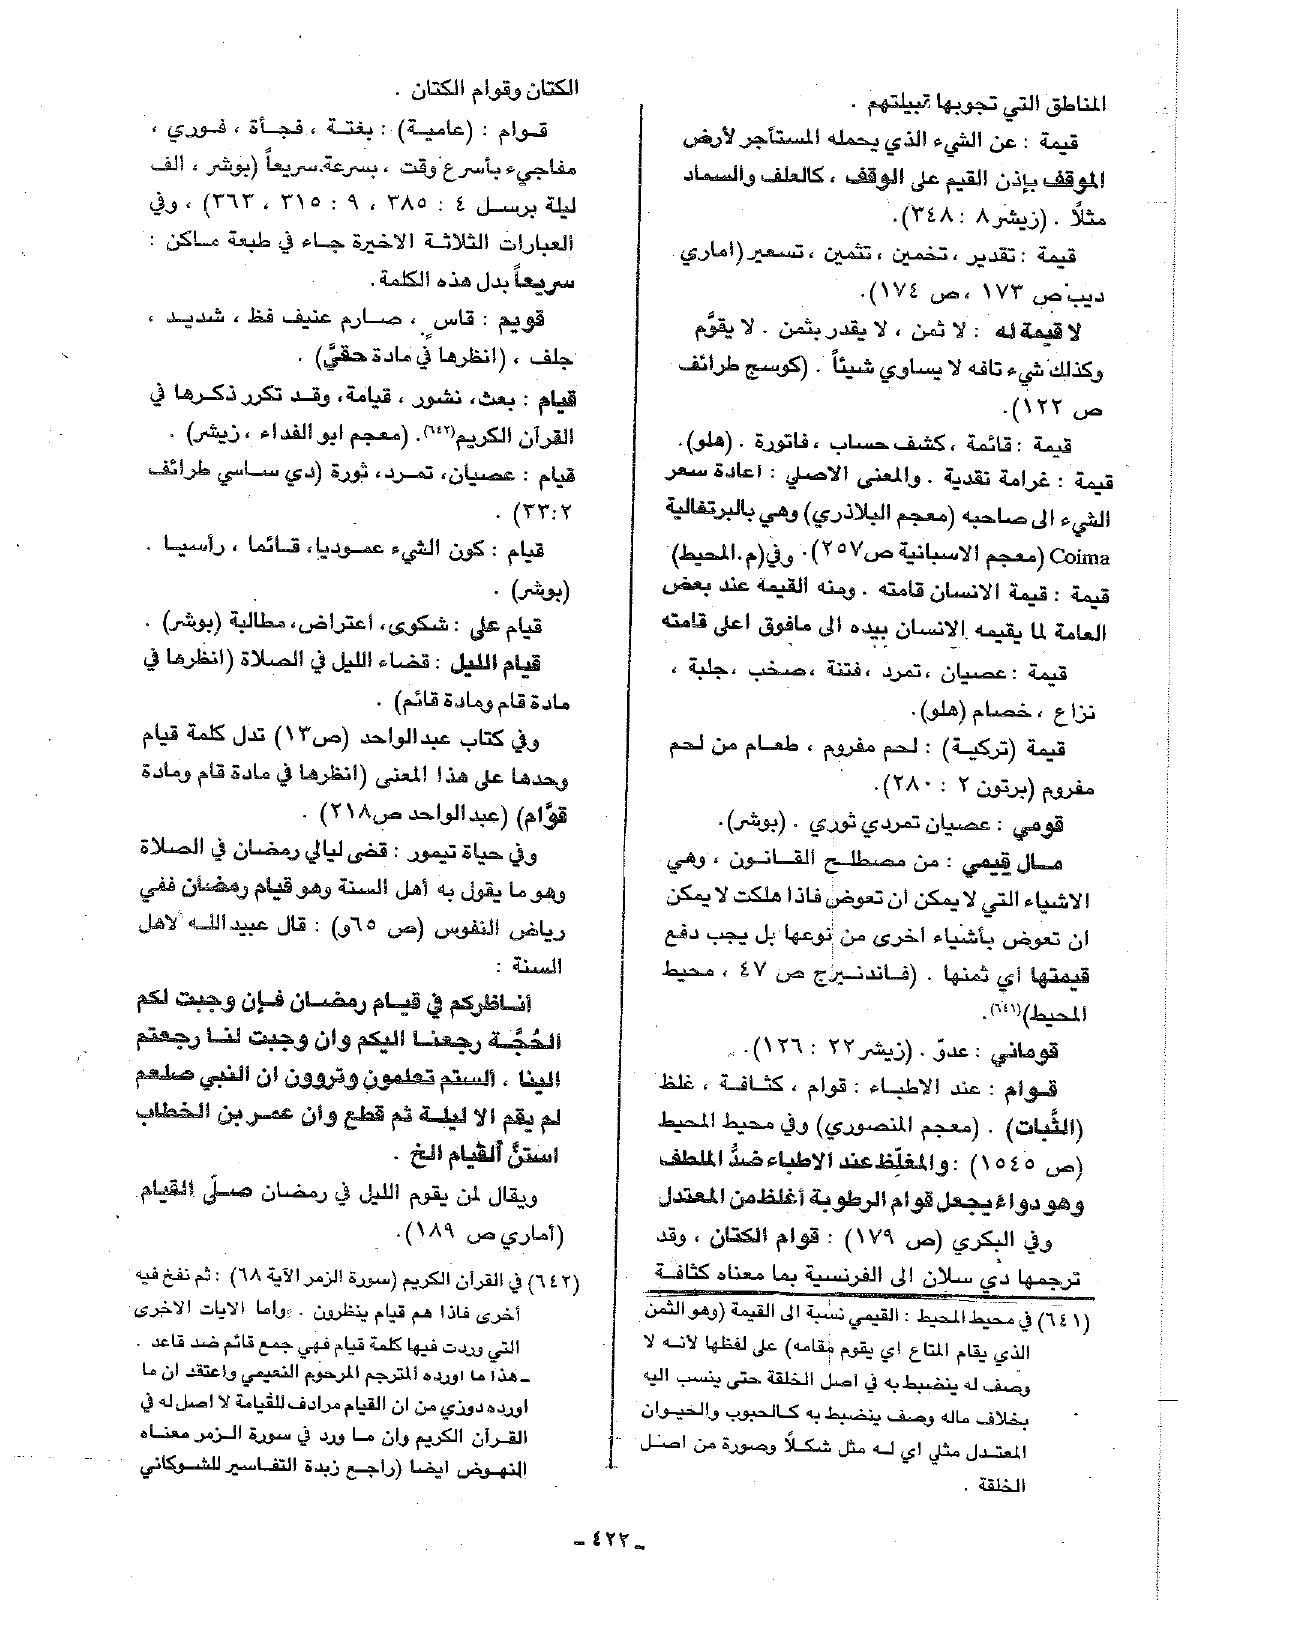 المناطق التي تجوبها قبيلتهم .
قيمة : عن الشيء الذي يحمله المستأجر لأرض
الموقف بإذن القيم على الوقف ، كالعلف والسماد
مثلاً . (زيشر ٨ : ٣٤٨).
قيمة : تقدير ، تخمين ، تثمين ، تسعير (اماري
ديب ص ١٧٣ ، ص ١٧٤).
لا قيمة له : لا ثمن ، لا يقدر بثمن . لا يقوَّم
وكذلك شيء تافه لا يساوي شيئاً . (كوسج طرائف
ص ١٢٢).
قيمة : قائمة ، كشف حساب ، فاتورة . (هلو).
قيمة : غرامة نقدية . والمعنى الاصلي : اعادة سعر
الشيء الى صاحبه (معجم البلاذري) وهي بالبرتغالية
Coima (معجم الاسبانية ص٢٥٧). وفي(م.المحيط)
قيمة : قيمة الانسان قامته . ومنه القيمة عند بعض
العامة لما يقيمه الإنسان بيده الى مافوق اعلى قامته
قيمة : عصيان ، تمرد ، فتنة ، صخب ، جلبة ،
نزاع ، خصام (هلو).
قيمة (تركية) : لحم مفروم ، طعام من لحم
مفروم (برتون ٢ : ٢٨٠).
قومي : عصيان تمردي ثوري . (بوشر).
مال قيمي : من مصطلح القانون ، وهي
الاشياء التي لا يمكن ان تعوض فاذا هلكت لا يمكن
ان تعوض بأشياء اخرى من نوعها بل يجب دفع
قيمتها أي ثمنها . (فاندنبرج ص ٤٧ ، محيط
المحيط)(٦٤١).
قوماني : عدوّ . (زيشر ٢٢ : ١٢٦).
قوام : عند الاطباء : قوام ، كثافة ، غلظ
(الثَّبات) . (معجم المنصوري) وفي محيط المحيط
(ص ١٥٤٥) : والمغلِّظ عند الاطباء ضدُّ الملطف
وهو دواء يجعل قوام الرطوبة أغلظ من المعتدل
وفي البكري (ص ١٧٩) : قوام الكتان ، وقد
ترجمها دي سلان الى الفرنسية بما معناه كثافة
(٦٤١) في محيط المحيط : القيمي نسبة الى القيمة (وهو الثمن
الذي يقام المتاع اي يقوم مقامه) على لفظها لانه لا
وصف له ينضبط به في اصل الخلقة حتى ينسب اليه
بخلاف ماله وصف ينضبط به كالحبوب والحيوان
المعتدل مثلي اي له مثل شكلاً وصورة من اصل
الخلقة .
الكتان وقوام الكتان .
قوام : (عامية) : بغتة ، فجأة ، فوري ،
مفاجيء بأسرع وقت ، بسرعة. سريعاً (بوشر ، الف
ليلة برسل ٤ : ٣٨٥ ، ٩ : ٣١٥ ، ٣٦٣) ، وفي
العبارات الثلاثة الاخيرة جاء في طبعة ماكن :
سريعاً بدل هذه الكلمة.
قويم : قاسٍ ، صارم عنيف فظ ، شديد ،
جلف ، (انظرها في مادة حقيَّ) .
قيام : بعث، نشور ، قيامة، وقد تكرر ذكرها في
القرآن الكريم(٦٤٢). (معجم ابو الفداء ، زيشر) .
قيام : عصيان، تمرد، ثورة (دي ساسي طرائف
٢:٣٣) .
قيام : كون الشيء عموديا، قائما ، رأسيا .
(بوشر) .
قيام على : شكوى، اعتراض، مطالبة (بوشر) .
قيام الليل : قضاء الليل في الصلاة (انظرها في
مادة قام ومادة قائم) .
وفي كتاب عبد الواحد (ص١٣) تدل كلمة قيام
وحدها على هذا المعنى (انظرها في مادة قام ومادة
قوَّام) (عبد الواحد ص٢١٨) .
وفي حياة تيمور : قضى ليالي رمضان في الصلاة
وهو ما يقول به أهل السنة وهو قيام رمضان ففي
رياض النفوس (ص ٦٥و) : قال عبيد الله لاهل
السنة :
أناظركم في قيام رمضان فإن وجبت لكم
الحُجَّة رجعنا اليكم وان وجبت لنا رجعتم
الينا ، ألستم تعلمون وتروون ان النبي صلعم
لم يقم الا ليلة ثم قطع وان عمر بن الخطاب
استنَّ القيام الخ .
ويقال لمن يقوم الليل في رمضان صلّى القيام
(أماري ص ١٨٩).
(٦٤٢) في القرآن الكريم (سورة الزمر الآية ٦٨) : ثم نفخ فيه
أخرى فاذا هم قيام ينظرون . واما الايات الاخرى
التي وردت فيها كلمة قيام فهي جمع قائم ضد قاعد .
ـ هذا ما اورده المترجم المرحوم النعيمي واعتقد ان ما
اورده دوزي من ان القيام مرادف للقيامة لا اصل له في
القرآن الكريم وان ما ورد في سورة الزمر معناه
النهوض ايضا (راجع زبدة التفاسير للشوكاني
ـ ٤٢٢ ـ